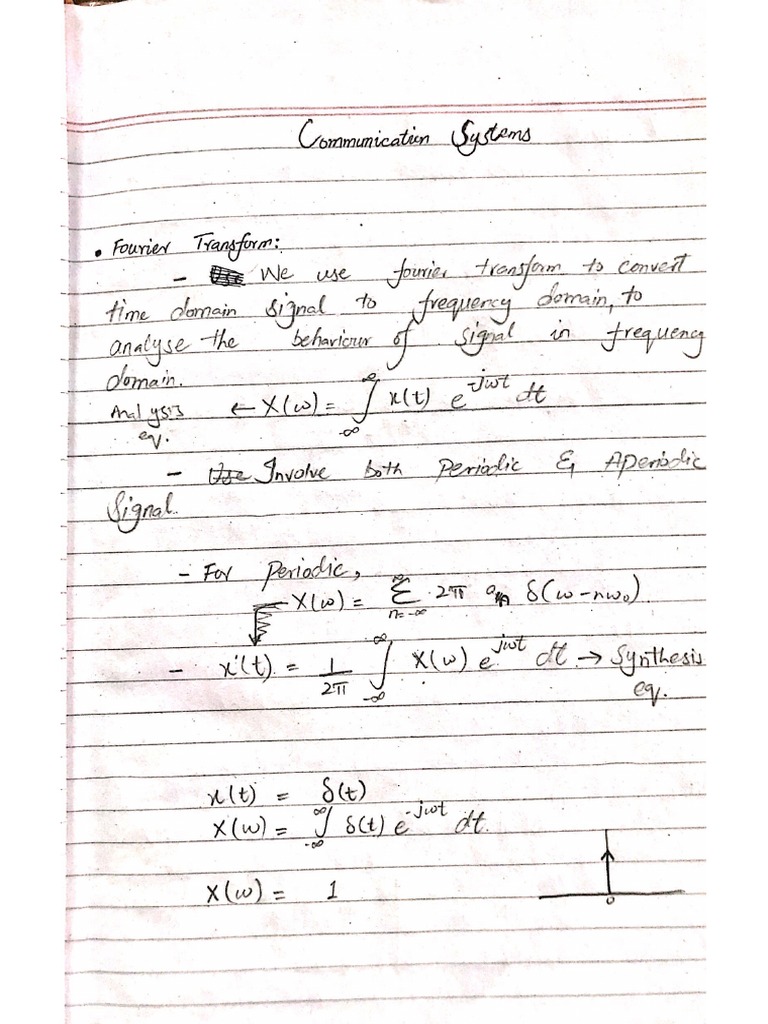 Communication Systems
• Fourier Transform:
- We use fourier transform to convert
time domain signal to frequency domain, to
analyse the behaviour of signal in frequency
domain.
Analysis ← X(ω) = ∫_{-∞}^{∞} x(t) e^{-jωt} dt
eq.
- Use Involve both Periodic & Aperiodic
Signal.
- For Periodic,
X(ω) = Σ_{n=-∞}^{∞} 2π a_n δ(ω-nω₀).
- x(t) = 1/2π ∫_{-∞}^{∞} X(ω) e^{jωt} dt → Synthesis
eq.
x(t) = δ(t)
X(ω) = ∫_{-∞}^{∞} δ(t) e^{-jωt} dt.
X(ω) = 1
0